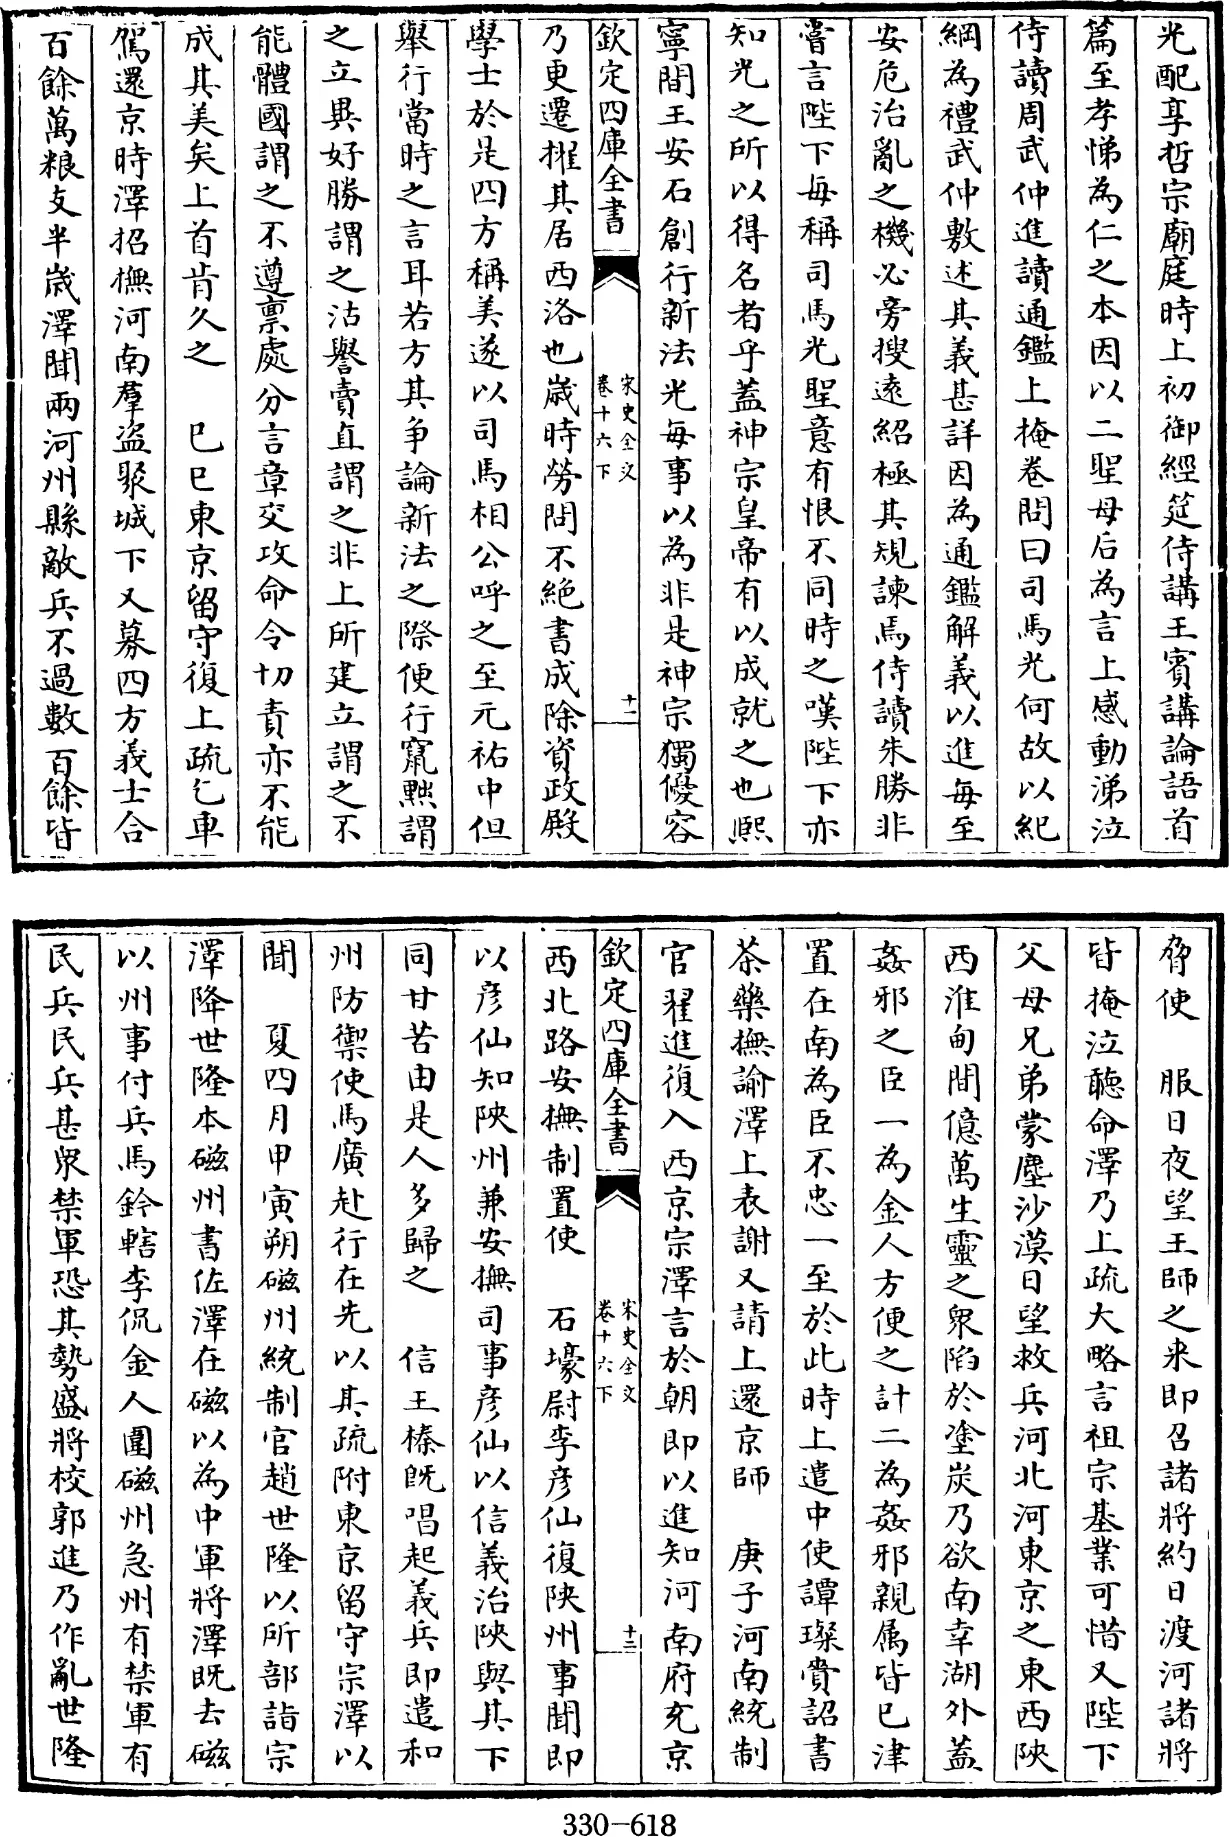 光配享哲宗廟庭時上初御經筵侍講王賓講論語首
篇至孝悌為仁之本因以二聖母后為言上感動涕泣
侍讀周武仲進讀通鑑上掩卷問曰司馬光何故以紀
綱為禮武仲敷述其義甚詳因為通鑑解義以進每至
安危治亂之機必旁搜逺紹極其規諫焉侍讀朱勝非
嘗言陛下每稱司馬光聖意有恨不同時之嘆陛下亦
知光之所以得名者乎蓋神宗皇帝有以成就之也熈
寧間王安石創行新法光每事以為非是神宗獨優容
欽定四庫全書
宋史全文
卷十六下
十一
乃更遷擢其居西洛也歳時勞問不絶書成除資政殿
學士於是四方稱美遂以司馬相公呼之至元祐中但
舉行當時之言耳若方其争論新法之際便行竄黜謂
之立異好勝謂之沽譽賣直謂之非上所建立謂之不
能體國謂之不遵禀處分言章交攻命令切責亦不能
成其美矣上首肯久之　己巳東京留守復上疏乞車
駕還京時澤招撫河南羣盗聚城下又募四方義士合
百餘萬粮支半歳澤聞兩河州縣敵兵不過數百餘皆
脅使　服日夜望王師之来即召諸將約日渡河諸將
皆掩泣聽命澤乃上疏大略言祖宗基業可惜又陛下
父母兄弟蒙塵沙漠日望救兵河北河東京之東西陜
西淮甸間億萬生靈之衆陷於塗炭乃欲南幸湖外蓋
姦邪之臣一為金人方便之計二為姦邪親属皆已津
置在南為臣不忠一至於此時上遣中使譚璨賫詔書
茶藥撫諭澤上表謝又請上還京師　庚子河南統制
官翟進復入西京宗澤言於朝即以進知河南府充京
欽定四庫全書
宋史全文
卷十六下
十二
西北路安撫制置使　石壕尉李彦仙復陜州事聞即
以彦仙知陜州兼安撫司事彦仙以信義治陜與其下
同甘苦由是人多歸之　信王榛旣唱起義兵即遣和
州防禦使馬廣赴行在先以其疏附東京留守宗澤以
聞　夏四月甲寅朔磁州統制官趙世隆以所部詣宗
澤降世隆本磁州書佐澤在磁以為中軍將澤旣去磁
以州事付兵馬鈐轄李侃金人圍磁州急州有禁軍有
民兵民兵甚衆禁軍恐其勢盛將校郭進乃作亂世隆
330-618